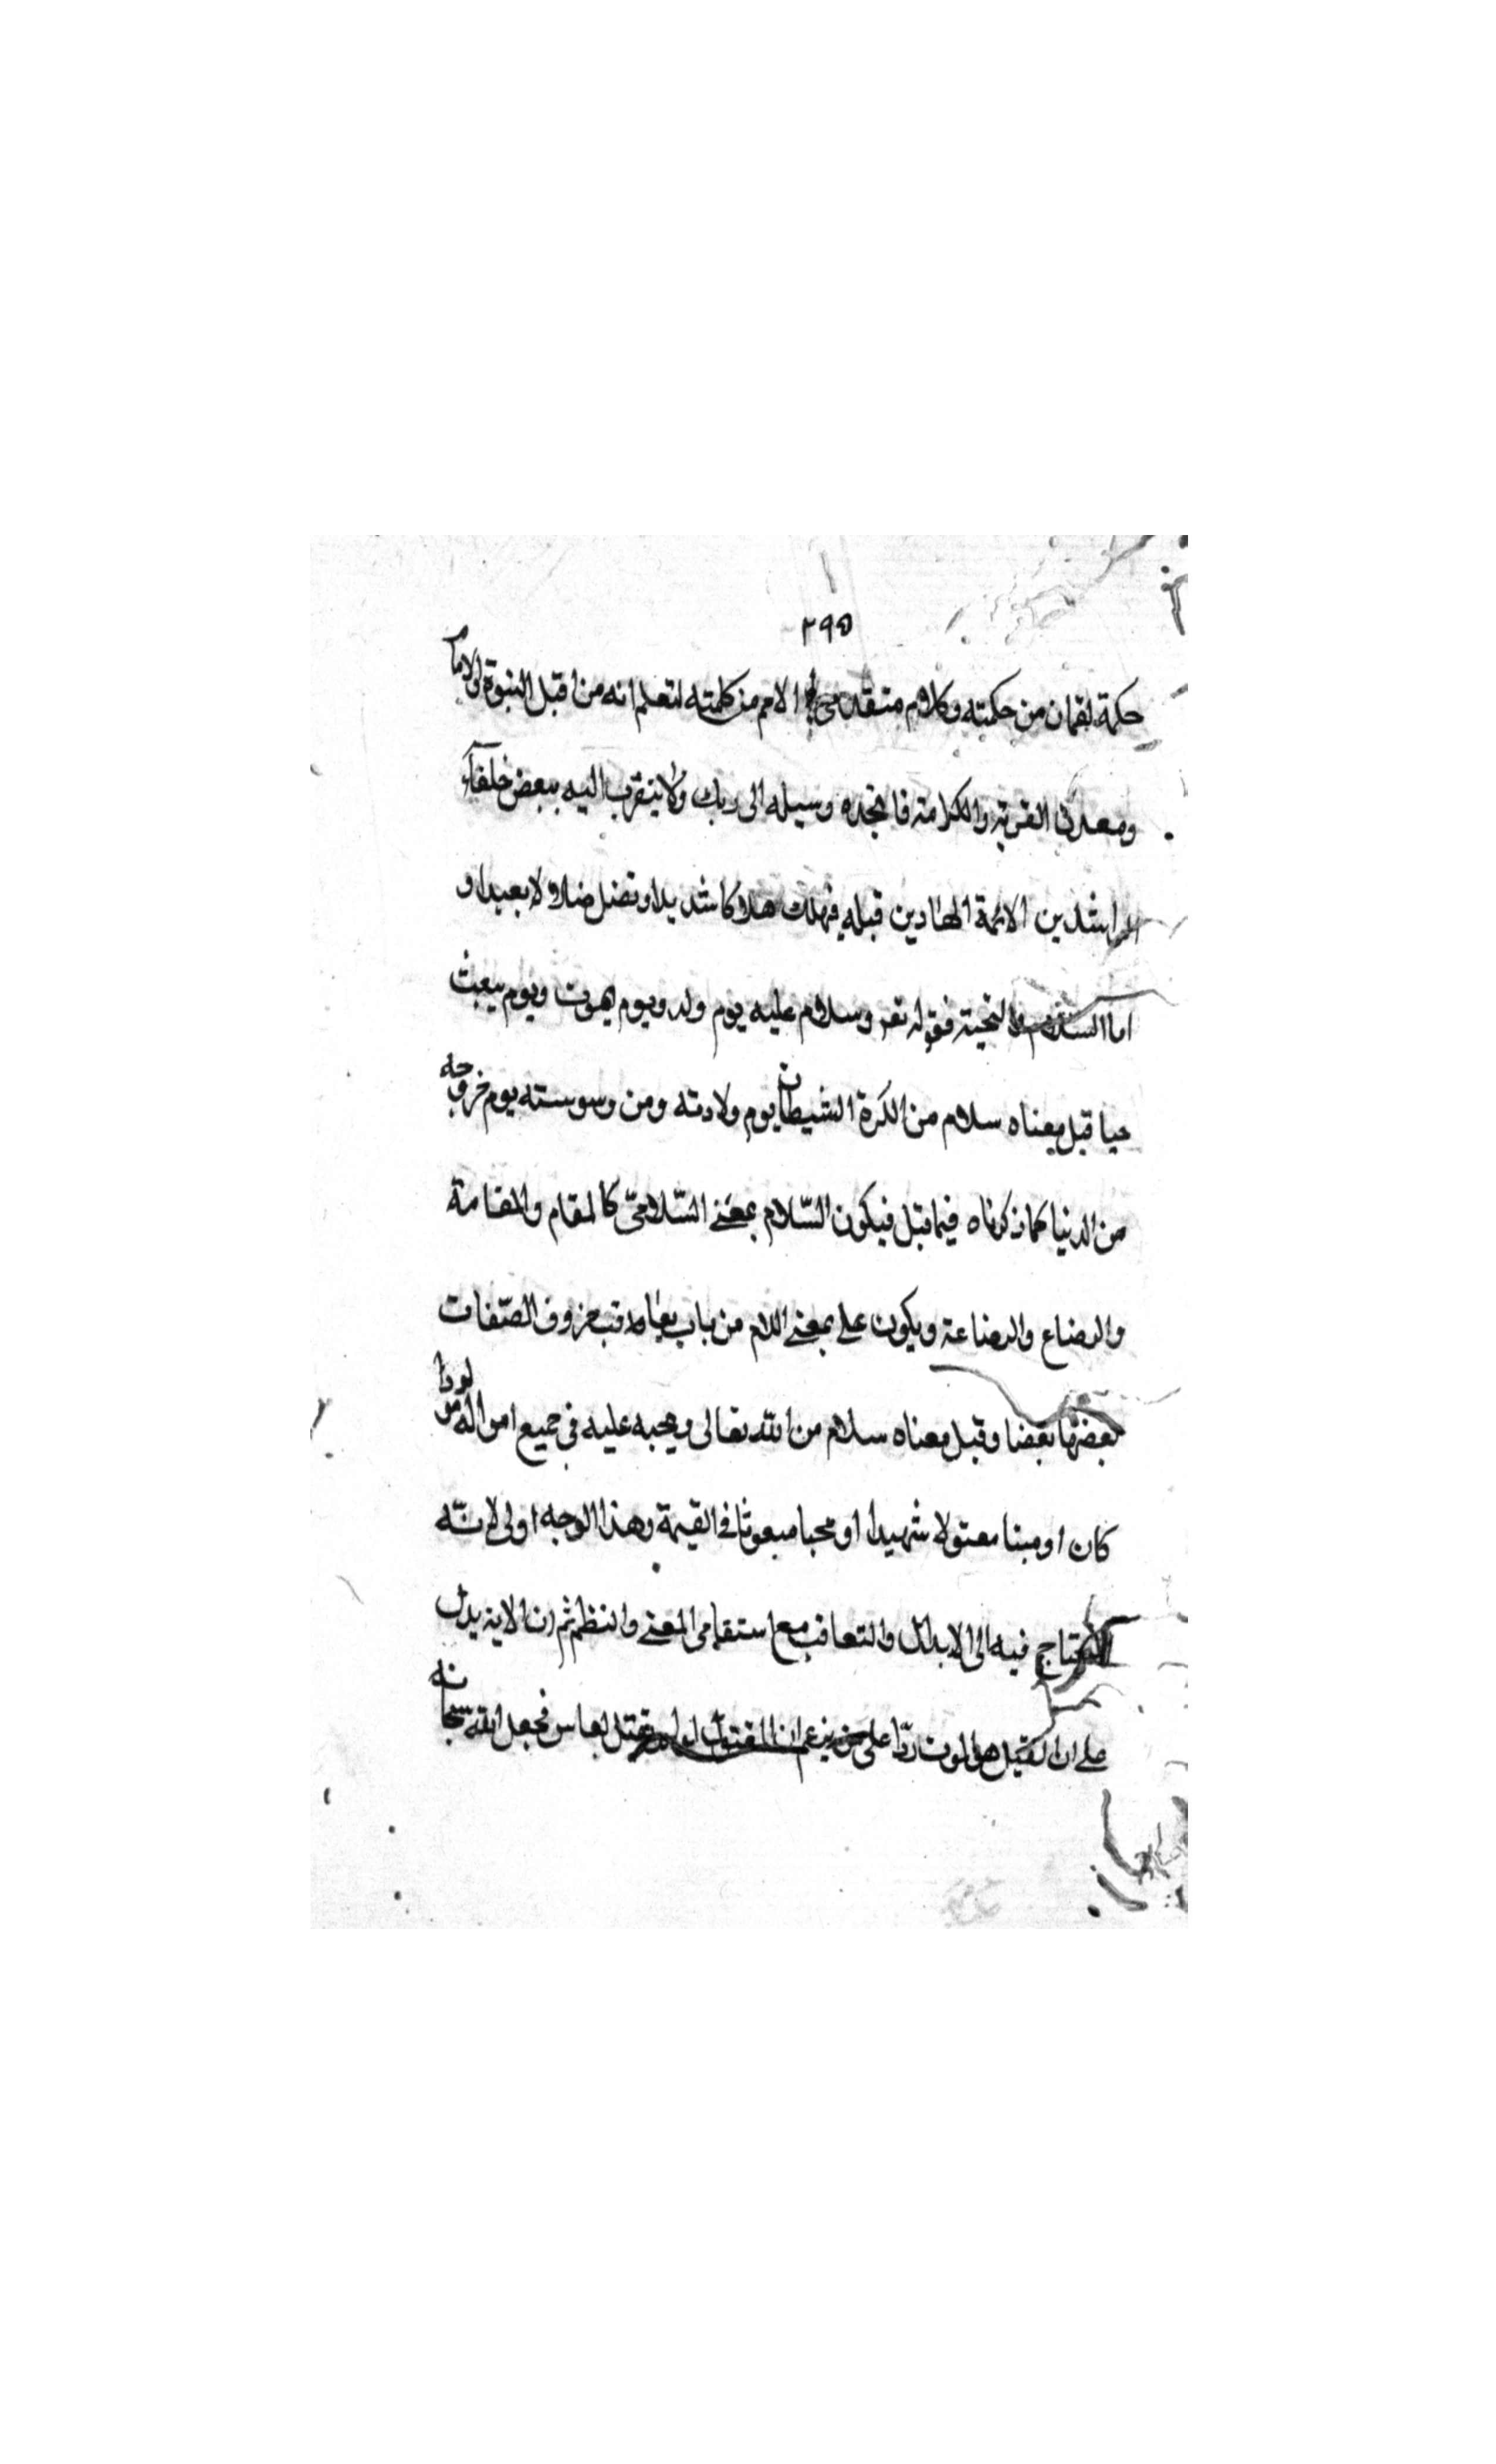 ٢٩٥
حكمة لقمان من حكمته وكلام متقدمى الامم من كلمته لتعلم انه من اقبل النبوة والاما
ومعدن القربة والكرامة فاتخذه وسيله الى ربك ولا يتقرب اليه ببعض خلفآء
الراشدين الائمة الهادين قبله فهلك هلاكا شديدا وتضل ضلالا بعيدا و
اما السلام والتحية فقوله تعر وسلام عليه يوم ولد ويوم يموت ويوم يبعث
حيا قيل معناه سلام من الكرة الشيطان يوم ولادته ومن وسوسته يوم خروجه
من الدنيا كما ذكرناه فيما قبل فيكون السّلام بمعنى السّلامىّ كالمقام والمقامة
والرضاع والرضاعة ويكون على بمعنى اللام من باب حروف الصّفات
بعضها بعضا وقيل معناه سلام من الله تعالى ويحبه عليه فى جميع امواله مولودا
كان او ميتا مقتولا شهيدا او محيا مبعوثا فى القيمة وهذا الوجه اولى لانّه
لا يحتاج فيه الى الابدال والتعاقب مع استقامى المعنى والنظم ثم ان الاية يدل
على ان القتيل هو الموت ردّا على من يزعم ان المقتول لو لم يقتل لعاش فجعل الله سبحانه